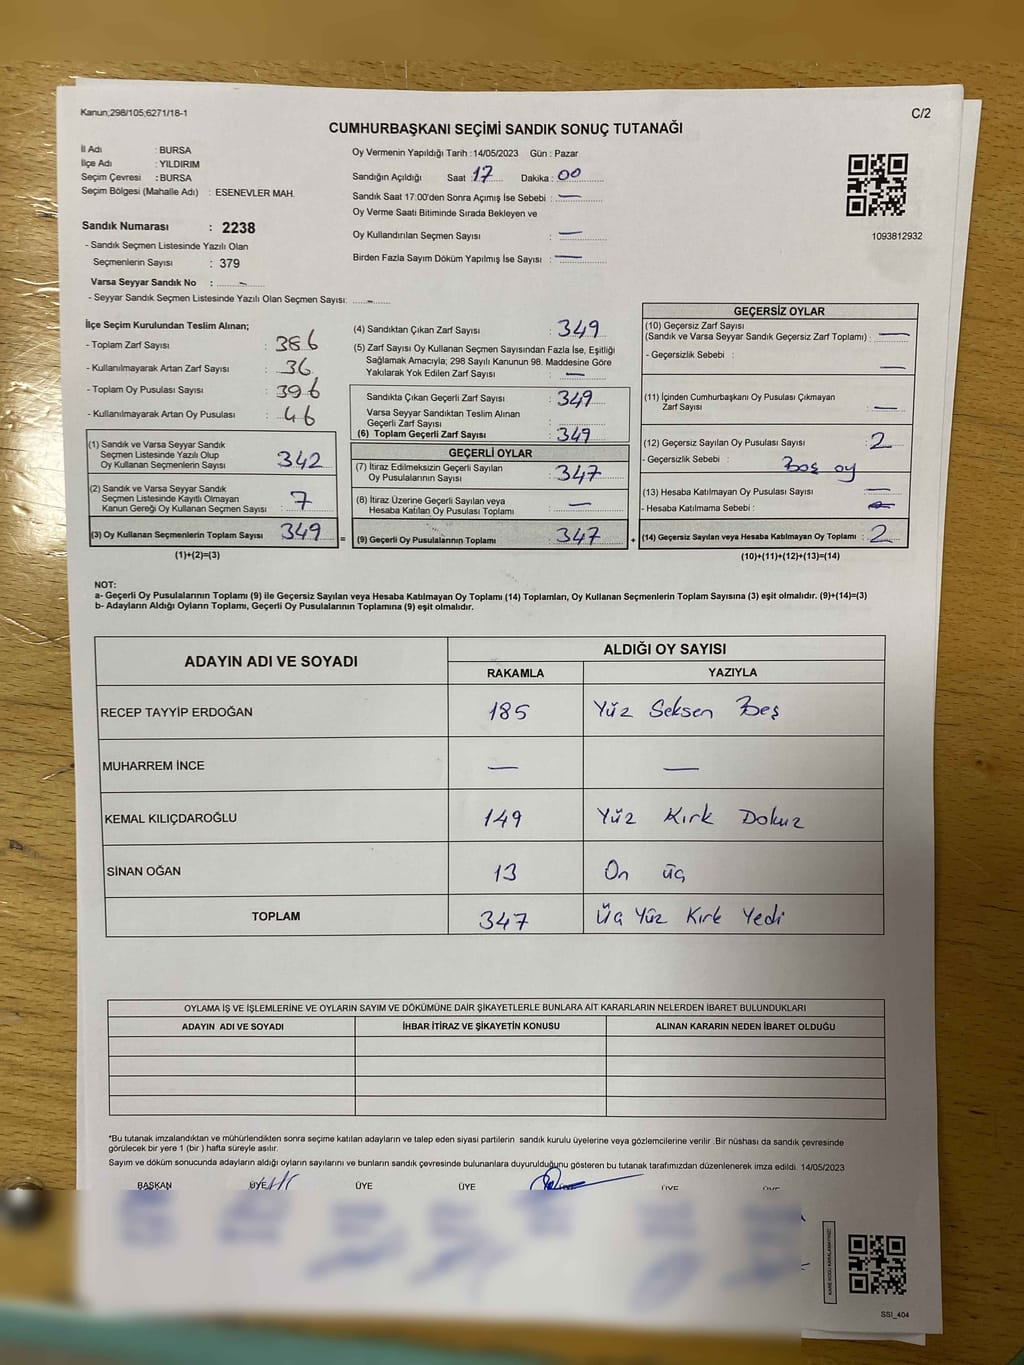 Kanun;298/105;6271/18-1
C/2
CUMHURBAŞKANI SEÇİMİ SANDIK SONUÇ TUTANAĞI
İl Adı : BURSA
İlçe Adı : YILDIRIM
Seçim Çevresi : BURSA
Seçim Bölgesi (Mahalle Adı) : ESENEVLER MAH.
Sandık Numarası : 2238
- Sandık Seçmen Listesinde Yazılı Olan
Seçmenlerin Sayısı : 379
Varsa Seyyar Sandık No : –
- Seyyar Sandık Seçmen Listesinde Yazılı Olan Seçmen Sayısı: –
Oy Vermenin Yapıldığı Tarih :14/05/2023 Gün : Pazar
Sandığın Açıldığı Saat :17 Dakika : 00
Sandık Saat 17:00'den Sonra Açımış İse Sebebi : —
Oy Verme Saati Bitiminde Sırada Bekleyen ve
Oy Kullandırılan Seçmen Sayısı : —
Birden Fazla Sayım Döküm Yapılmış İse Sayısı : —
1093812932
İlçe Seçim Kurulundan Teslim Alınan;
- Toplam Zarf Sayısı : 386
- Kullanılmayarak Artan Zarf Sayısı : 36
- Toplam Oy Pusulası Sayısı : 396
- Kullanılmayarak Artan Oy Pusulası : 46
(1) Sandık ve Varsa Seyyar Sandık
Seçmen Listesinde Yazılı Olup
Oy Kullanan Seçmenlerin Sayısı : 342
(2) Sandık ve Varsa Seyyar Sandık
Seçmen Listesinde Kayıtlı Olmayan
Kanun Gereği Oy Kullanan Seçmen Sayısı : 7
(3) Oy Kullanan Seçmenlerin Toplam Sayısı : 349 =
(1)+(2)=(3)
(4) Sandıktan Çıkan Zarf Sayısı : 349
(5) Zarf Sayısı Oy Kullanan Seçmen Sayısından Fazla İse, Eşitliği
Sağlamak Amacıyla; 298 Sayılı Kanunun 98. Maddesine Göre
Yakılarak Yok Edilen Zarf Sayısı : —
Sandıkta Çıkan Geçerli Zarf Sayısı : 349
Varsa Seyyar Sandıktan Teslim Alınan
Geçerli Zarf Sayısı :
(6) Toplam Geçerli Zarf Sayısı : 349
GEÇERLİ OYLAR
(7) İtiraz Edilmeksizin Geçerli Sayılan
Oy Pusulalarının Sayısı : 347
(8) İtiraz Üzerine Geçerli Sayılan veya
Hesaba Katılan Oy Pusulası Toplamı : —
(9) Geçerli Oy Pusulalarının Toplamı : 347 +
GEÇERSİZ OYLAR
(10) Geçersiz Zarf Sayısı
(Sandık ve Varsa Seyyar Sandık Geçersiz Zarf Toplamı) : —
- Geçersizlik Sebebi : —
(11) İçinden Cumhurbaşkanı Oy Pusulası Çıkmayan
Zarf Sayısı : —
(12) Geçersiz Sayılan Oy Pusulası Sayısı : 2
- Geçersizlik Sebebi : Boş oy
(13) Hesaba Katılmayan Oy Pusulası Sayısı : —
- Hesaba Katılmama Sebebi : —
(14) Geçersiz Sayılan veya Hesaba Katılmayan Oy Toplamı : 2
(10)+(11)+(12)+(13)=(14)
NOT:
a- Geçerli Oy Pusulalarının Toplamı (9) ile Geçersiz Sayılan veya Hesaba Katılmayan Oy Toplamı (14) Toplamları, Oy Kullanan Seçmenlerin Toplam Sayısına (3) eşit olmalıdır. (9)+(14)=(3)
b- Adayların Aldığı Oyların Toplamı, Geçerli Oy Pusulalarının Toplamına (9) eşit olmalıdır.
ADAYIN ADI VE SOYADI
ALDIĞI OY SAYISI
RAKAMLA YAZIYLA
RECEP TAYYİP ERDOĞAN 185 Yüz Seksen Beş
MUHARREM İNCE — —
KEMAL KILIÇDAROĞLU 149 Yüz Kırk Dokuz
SİNAN OĞAN 13 On üç
TOPLAM 347 Üç Yüz Kırk Yedi
OYLAMA İŞ VE İŞLEMLERİNE VE OYLARIN SAYIM VE DÖKÜMÜNE DAİR ŞİKAYETLERLE BUNLARA AİT KARARLARIN NELERDEN İBARET BULUNDUKLARI
ADAYIN ADI VE SOYADI İHBAR İTİRAZ VE ŞİKAYETİN KONUSU ALINAN KARARIN NEDEN İBARET OLDUĞU
*Bu tutanak imzalandıktan ve mühürlendikten sonra seçime katılan adayların ve talep eden siyasi partilerin sandık kurulu üyelerine veya gözlemcilerine verilir .Bir nüshası da sandık çevresinde
görülecek bir yere 1 (bir ) hafta süreyle asılır.
Sayım ve döküm sonucunda adayların aldığı oyların sayılarını ve bunların sandık çevresinde bulunanlara duyurulduğunu gösteren bu tutanak tarafımızdan düzenlenerek imza edildi. 14/05/2023
BAŞKAN ÜYE ÜYE ÜYE ÜYE ÜYE
SSI_404